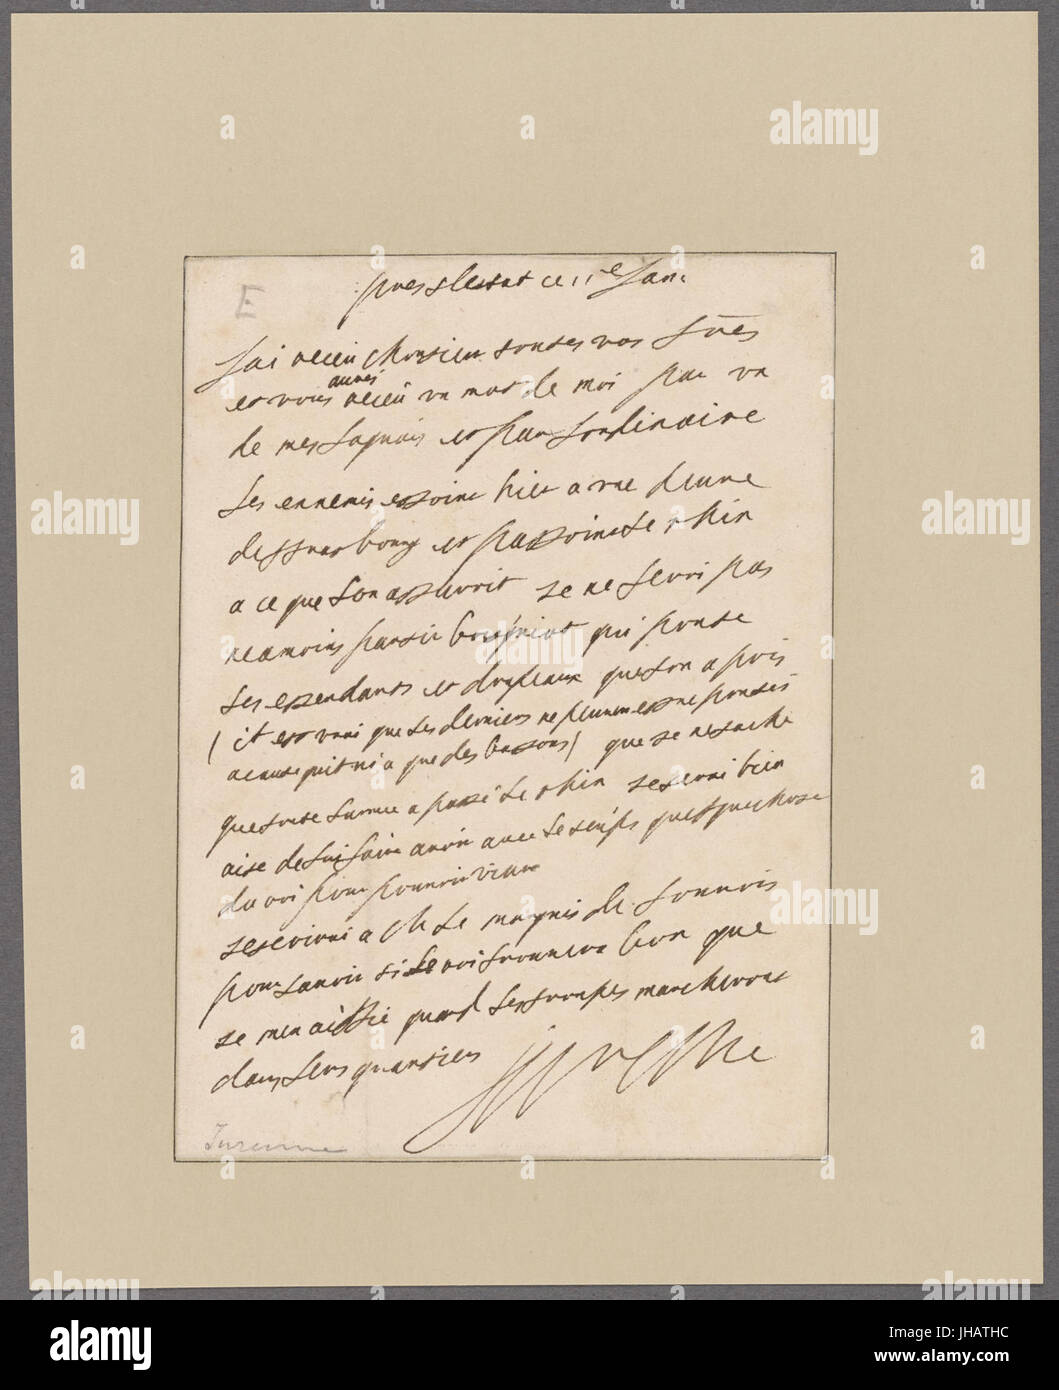 E
pres slestat ce 11e Jan.
Jai receu Monsieur toutes vos lres
et vous aures receu un mot de moi par un
de mes laquais et par lordinaire
les ennemis estoint hier a une lieue
de strasbourg et passoint le rhin
a ce que lon assuroit je ne serai pas
neamoins partir qui porte
les estendarts et drapeaux que lon a pris
(il est vrai que les derniers ne peuvent estre portés
a cause quil ni a que des bastons) que je ne sache
que toute larmee a passé le rhin je serai bien
aise de lui faire avoir avec le temps quelque chose
du roi pour pouvoir vivre
jescrivai a Mr le marquis de louvois
pour savoir si le roi trouvera bon que
je men aille quand les troupes marcheront
dans leurs quartiers
Turenne
alamy stock photo
a
alamy
Image ID: JHATHC
www.alamy.com